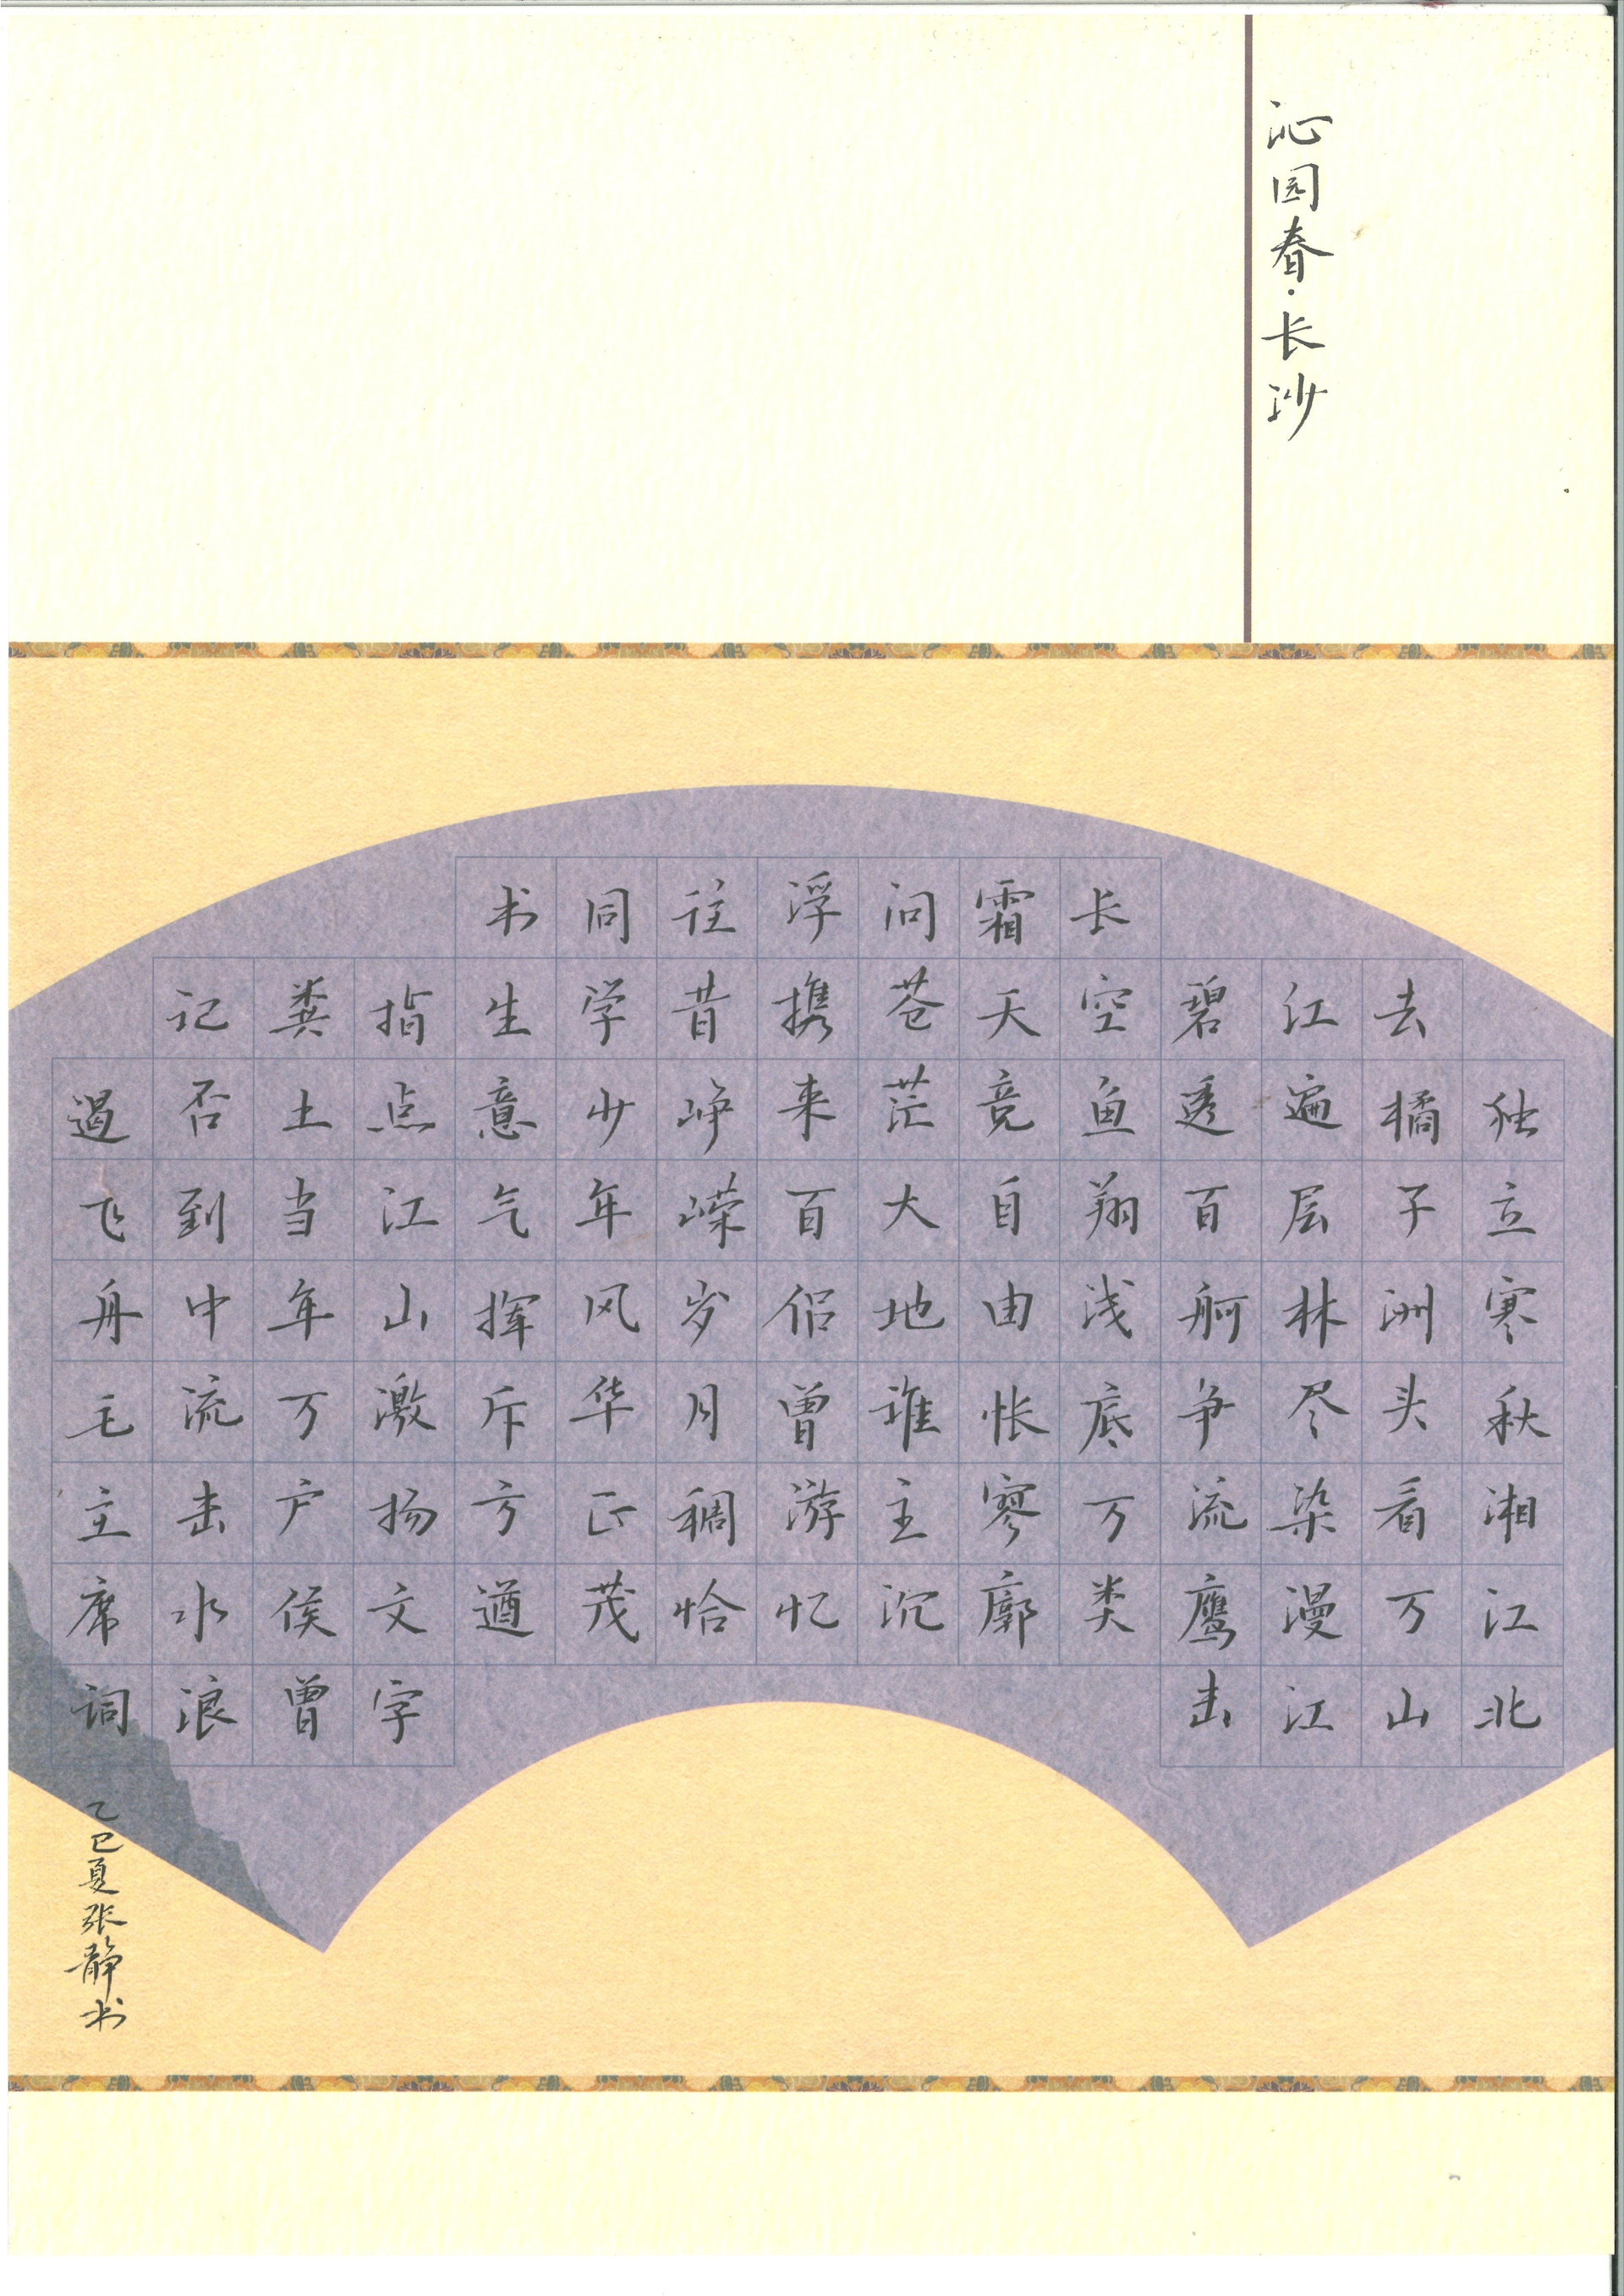 沁园春·长沙
独立寒秋湘江北
去橘子洲头看万山
江遍层林尽染漫江
碧透百舸争流鹰击
长空鱼翔浅底万类
霜天竞自由怅寥廓
问苍茫大地谁主沉
浮携来百侣曾游忆
往昔峥嵘岁月稠恰
同学少年风华正茂
书生意气挥斥方遒
指点江山激扬文字
粪土当年万户侯曾
记否到中流击水浪
遏飞舟毛主席词
乙巳夏张静书